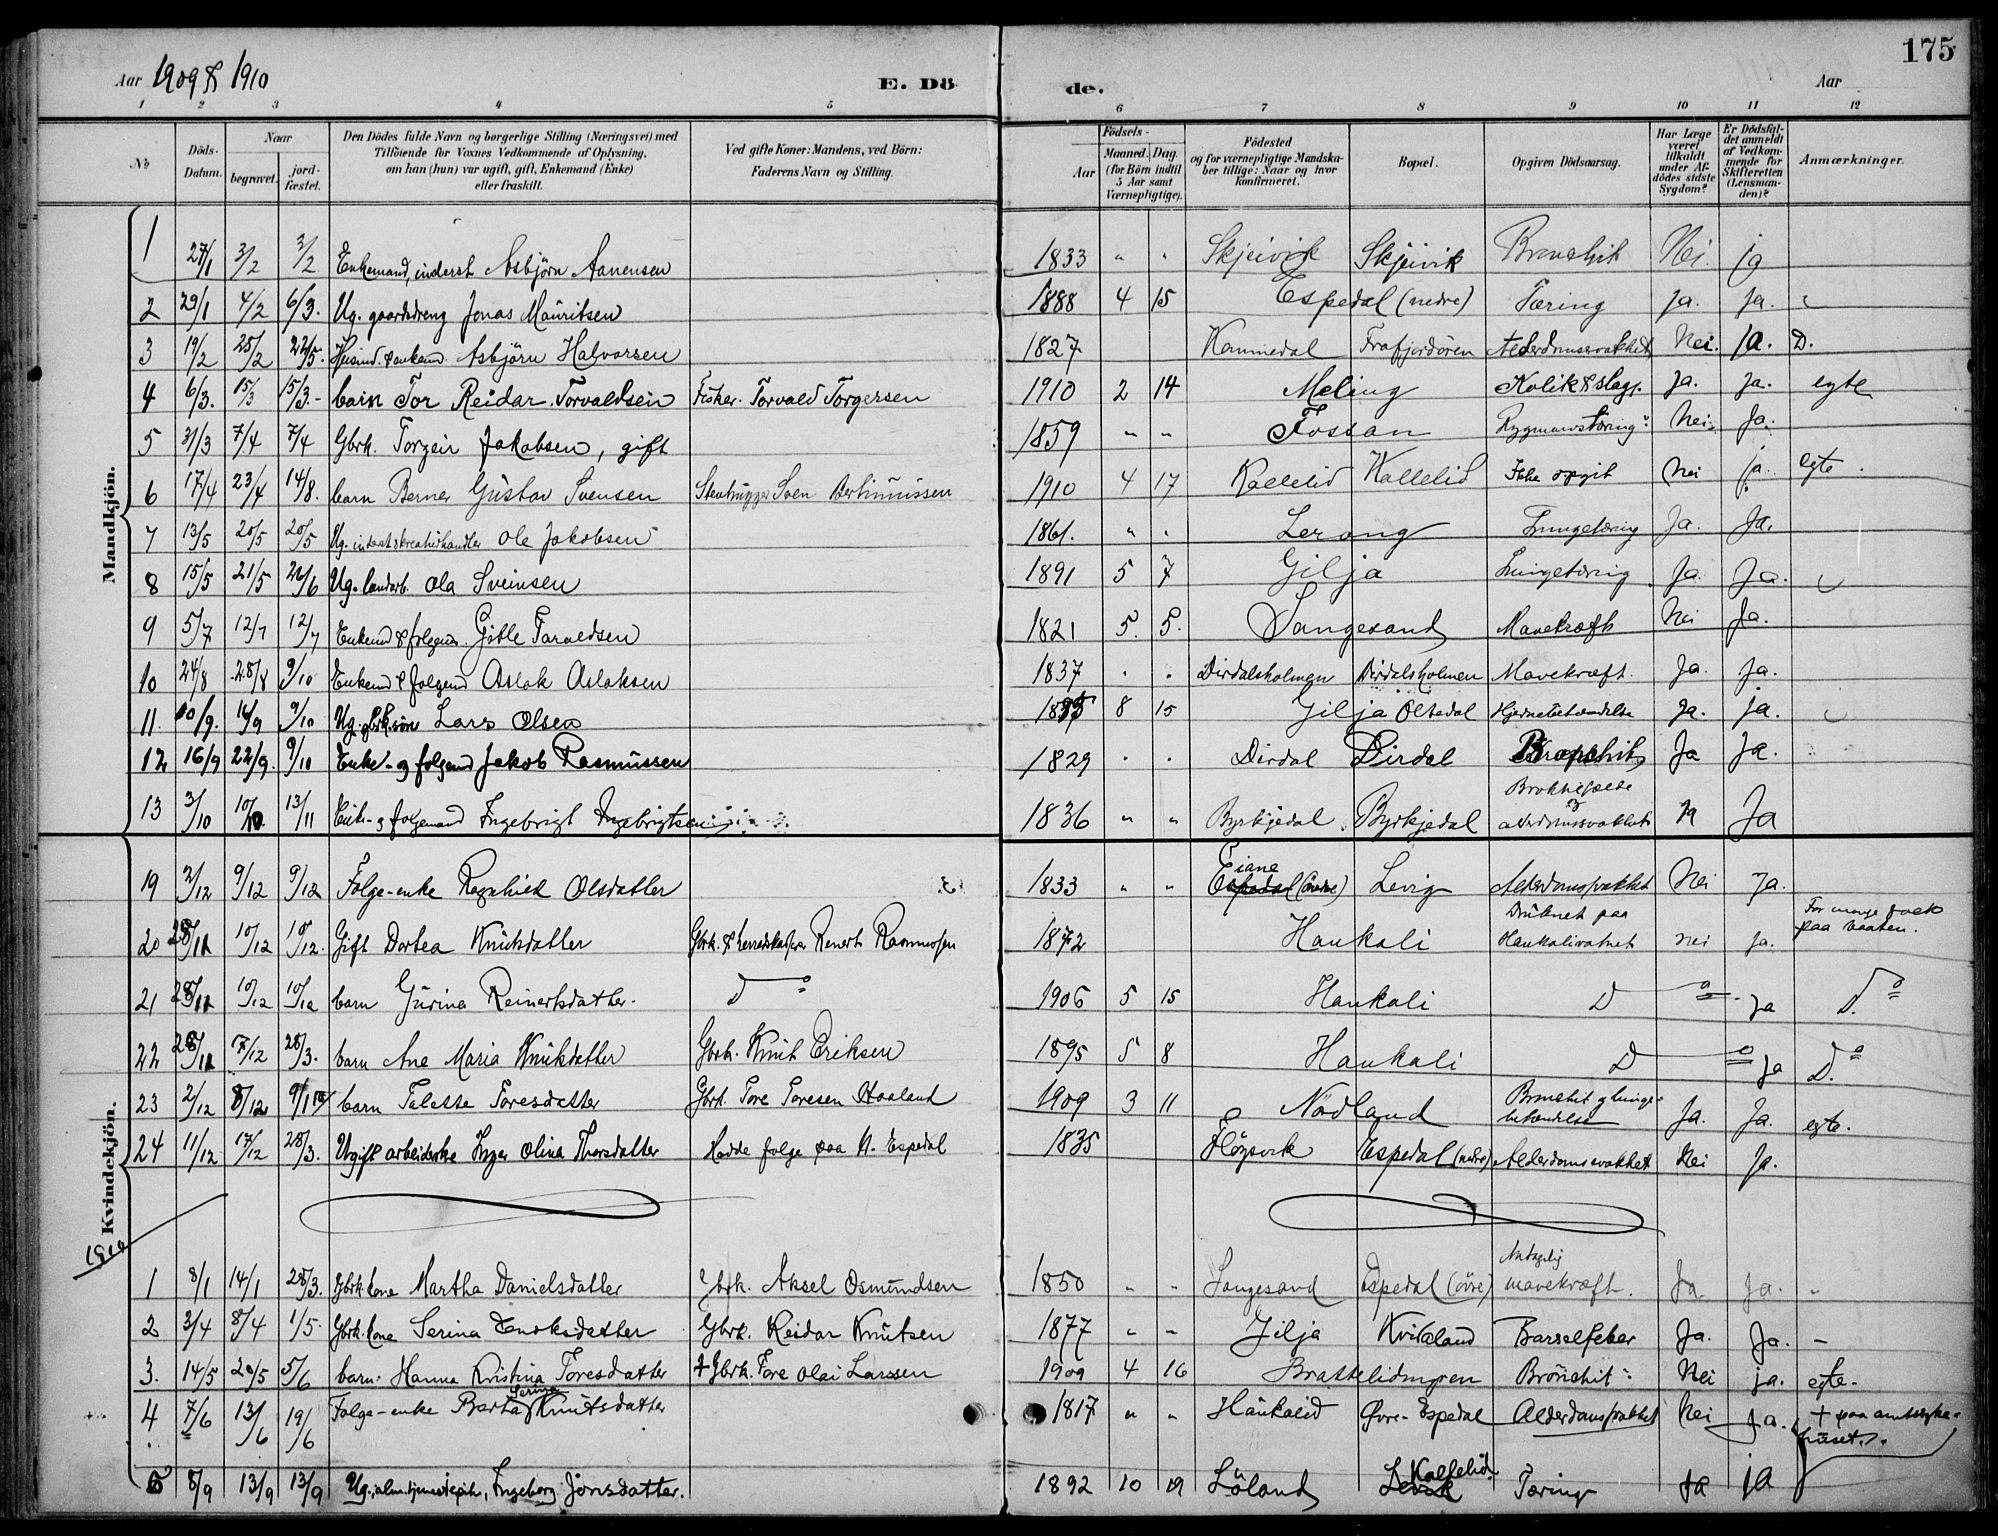 175
Aar 1909 & 1910 E. Dö de. Aar
1 2 3 4 5 6 7 8 9 10 11 12
No
Döds-Datum.
Naar
begravet.
jord-fæstet.
Den Dödes fulde Navn og borgerlige Stilling (Næringsvei) med
Tilföiende for Voxnes Vedkommende af Oplysning,
om han (hun) var ugift, gift, Enkemand (Enke)
eller fraskilt.
Ved gifte Koner: Mandens, ved Börn:
Faderens Navn og Stilling.
Födsels-
Aar
Maaned. Dag
(for Börn indtil
5 Aar samt
Værnepligtige).
Födested
og for værnepligtige Mandska-
ber tillige: Naar og hvor
konfirmeret.
Bopæl.
Opgiven Dödsaarsag.
Har Læge
været
tilkaldt
under Af-
dödes sidste
Sygdom?
Er Dödsfal-
det anmeldt
af Vedkom-
mende for
Skifteretten
(Lensman-
den)?
Anmærkninger.
Mandkjön.
1 27/1 3/2 3/2 Enkemand, inderst Asbjörn Aanensen 1833 " " Skjeivik Skjeivik Bronchit Nei ja
2 29/1 4/2 6/3. Ug. gaardsdreng Jonas Mauritsen 1888 4 15 Espedal (nedre) Tæring ja. ja.
3 19/2 25/2 22/5. Husmd. & enkem. Asbjörn Halvorsen 1827 Kommedal Frafjordören Alderdomssvakhet Nei. ja. D.
4 6/3. 15/3 15/3.- barn Tor Reidar Torvaldsen Fisker. Torvald Torgersen 1910 2 14 Meling Kolik & slag. ja. ja. egte
5 31/3 7/4 7/4 Gbrk. Torgeir Jakobsen, gift 1859 " " Fossan Rygmarvstæring Nei. Ja.
6 17/4 23/4 14/8. barn Berner Gustav Svensen Stenhugger Sven Bertinussen 1910 4 17 Kallelid Kallelid Ikke opgit Nei ja. egte.
7 13/5 20/5 20/5 Ug. inderst & kreaturhandler Ole Jakobsen 1861. " " Lerang Lungetæring Ja. Ja.
8 15/5 21/5 26/6 Ug. landarb. Ola Sveinsen 1891 5 7 Gilja Lungetæring Ja. Ja.
9 5/7 12/7 12/7 Enkemd & folgem. Gitle Taraldsen 1821 5. 5. Sangesand Mavekræft Nei Ja.
10 24/8 28/8 9/10 Enkemd & folgemd Aslak Aslaksen 1837 " " Dirdalsholmen Dirdalsholmen Mavekræft. Ja. ja.
11. 10/9. 16/9 9/10 Ug. gbrk.søn Lars Olsen 8 15 Gilja Oltedal Hjernebetændelse Ja. ja.
12 16/9 22/9. 9/10 Enke- og folgemd Jakob Rasmussen 1829 " " Dirdal Dirdal Bronchit Ja Ja.
13 3/10 10/10. 13/11 Enk- og folgemand Ingebrigt Ingebrigtsen 1836 " " Byrkjedal Byrkjedal Brokhefælde og alderdomssvakhet N Ja
Kvindekjön.
19 2/12 9/12 9/12 Folge-enke Ragnhild Olsdatter 1833 " " Eiane Espedal (övre) Levig Alderdomssvakhet Nei Ja.
20 28/11 10/12 10/12. Gift Dortea Knutsdatter Gbrk. & herredskasserer Reinert Rasmussen 1872 Haukali Druknet paa Haukalivatnet nei ja. For mange folk paa baaten.
21 28/11 10/12 10/12 barn Gurina Reinertsdatter. Do 1906 5 15 Haukali Do Ja Do
22 28/11 17/12 28/3. barn Ane Maria Knutsdatter Gbrk. Knut Eriksen 1895 5 8 Haukali Do Ja Do
23 2/12 8/12 9/1 10/ barn Talette Toresdatter Gbrk. Tore Toresen Haaland 1909 3 11 Nödland Bronchit og lunge-betændelse Ja. Ja. egte.
24 11/12 17/12 28/3. Ugift arbeiderske Inger Olina Thorsdatter Hadde folge paa N. Espedal 1835 Flögsvik Espedal (nedre) Alderdomssvakhet Nei Ja.
1910
1 8/1 14/1 28/3. Gbrk. kone Martha Danielsdatter Gbrk. Aksel Osmundsen 1850 " " Sangesand Espedal (övre) Antagelig mavekræft. Ja. Ja.
2 3/4 8/4 1/5. Gbrk. kone Serina Enoksdatter Gbrk. Reidar Knutsen 1877 " " Gilja Kvitaland Barselfeber Ja. Ja. -
3. 14/5 20/5 5/6 barn: Hanna Kristina Toresdatter + Gbrk. Tore Olai Larssen 1909 4 16 Brattelidmyren Brönchit Nei ja. egte.
4 7/6 13/6 19/6 Folge-enke Berta Serina Knutsdatter 1817 " " Haukalid Øvre-Espedal Alderdomssvakhet Nei Ja. + paa amtssyke-huset.
5 8/9 13/9 13/9 Ug. alm. tjenestepike, Ingeborg Jonsdatter. 1892 10 19 Löland Levik Kallelid Tæring Ja ja